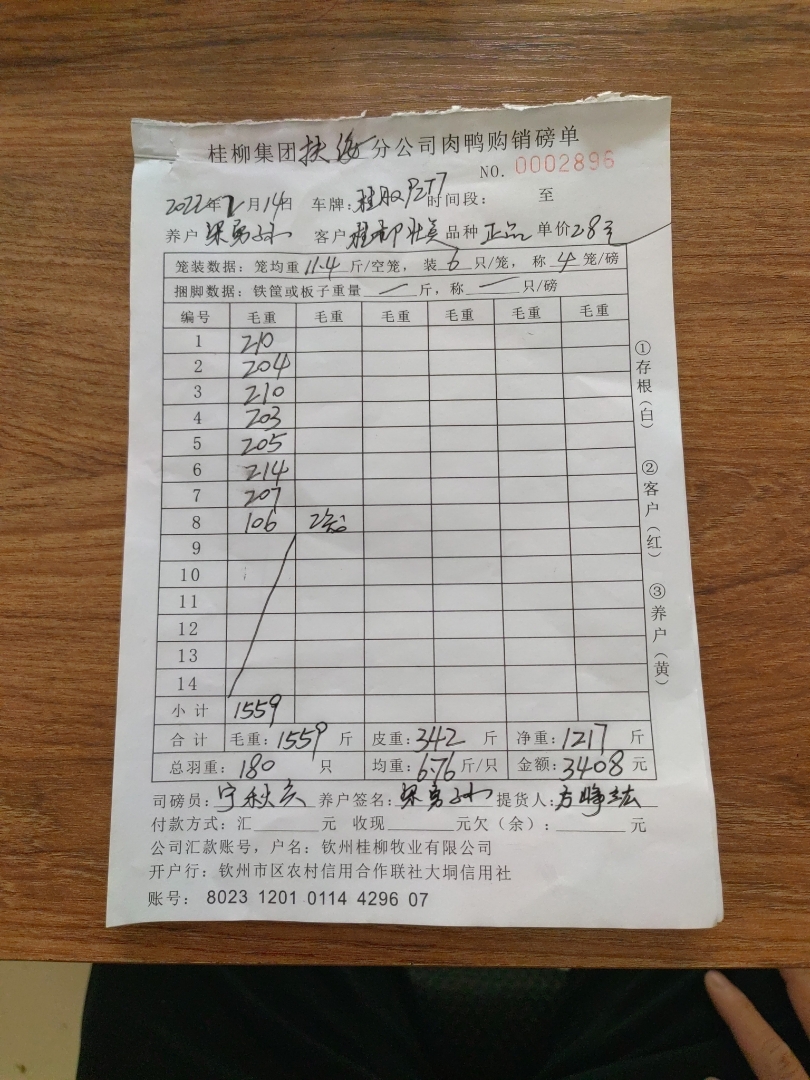 桂柳集团 分公司肉鸭购销磅单
NO. 0002896
2022年 月14日 车牌: 时间段: 至
养户 客户 品种 正品 单价 2.8元
笼装数据: 笼均重 11.4 斤/空笼, 装 6 只/笼, 称 4 笼/磅
捆脚数据: 铁筐或板子重量 — 斤, 称 — 只/磅
编号 毛重 毛重 毛重 毛重 毛重 毛重
1 210
2 204
3 210
4 203
5 205
6 214
7 207
8 106
9
10
11
12
13
14
小计 1559
合计 毛重: 1559 斤 皮重: 342 斤 净重: 1217 斤
总羽重: 180 只 均重: 6.76 斤/只 金额: 3408 元
司磅员: 宁秋 养户签名: 提货人:
付款方式: 汇 元 收现 元欠(余): 元
公司汇款账号, 户名: 钦州桂柳牧业有限公司
开户行: 钦州市区农村信用合作联社大垌信用社
账号: 8023 1201 0114 4296 07
①存根(白)
②客户(红)
③养户(黄)